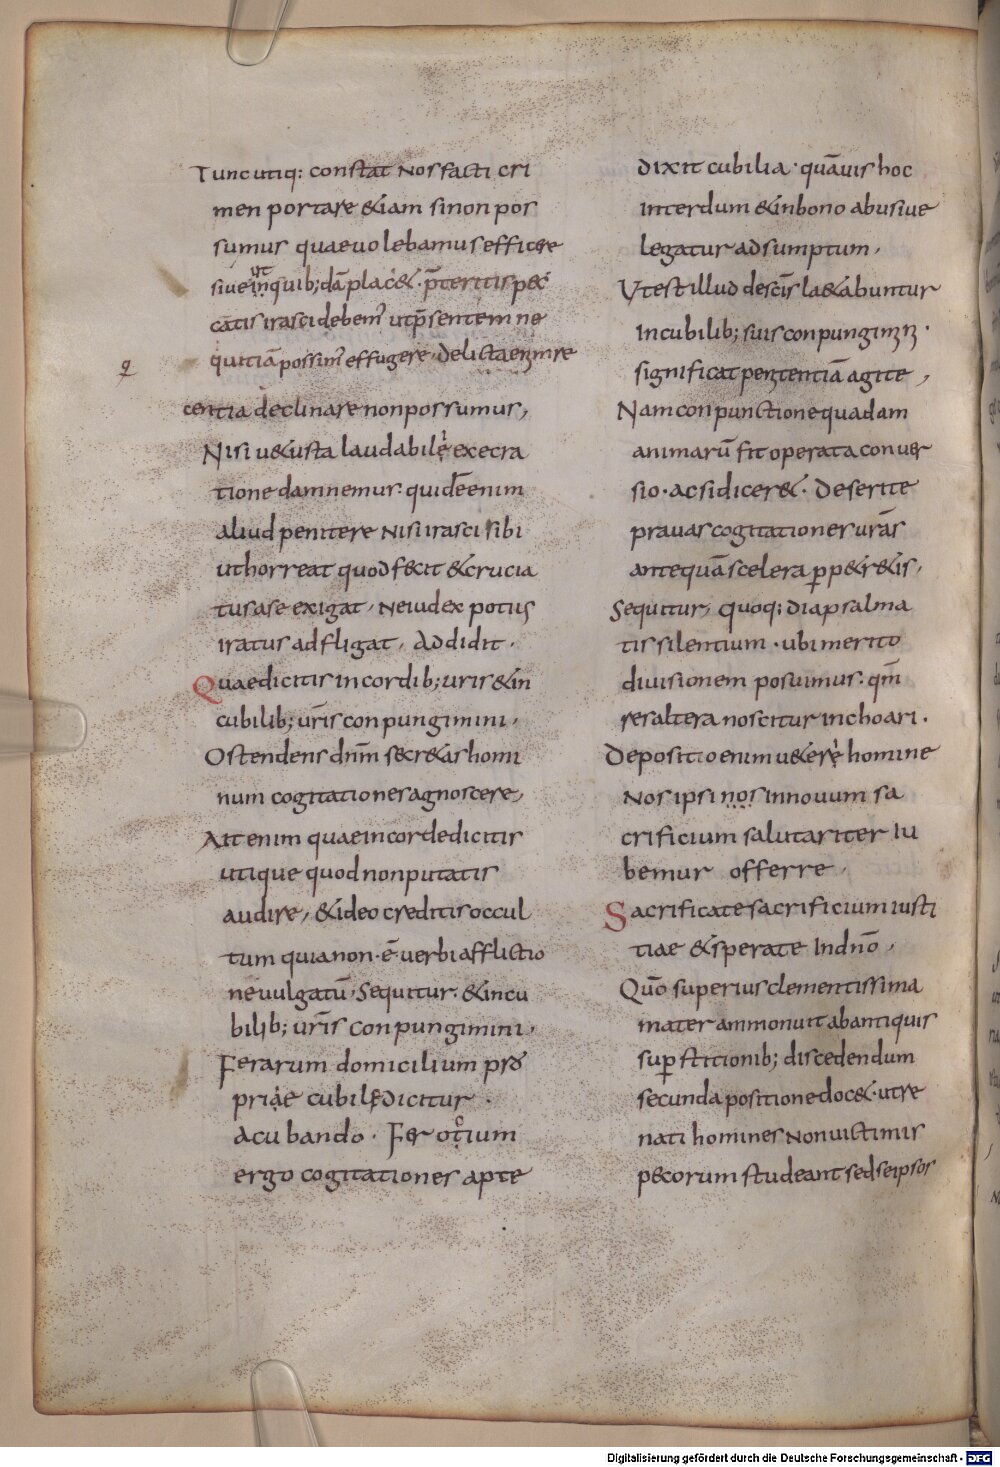 Tunc utiq: constat Nos facti cri
men portare &iam si non pos
sumus quae uolebamus efficere
siue in quib; dā plac&. p̄teritis pec
ut
catis irasci debem' ut p̄sentem ne
quitiā possim' effugere. Delicta enim re
q
centia declinare non possumus,
Nisi u&usta laudabile execra
tione damnemur. quid ē enim
aliud penitere Nisi irasci sibi
ut horreat quod fecit & crucia
tus a se exigat, Ne iudex potius
iratus adfligat, Addidit.
Quae dicitis in cordib; uris & in
cubilib; uris conpungimini.
Ostendens dnm secr&as homi
num cogitationes agnoscere,
Ait enim quae in corde dicitis
utique quod non putatis
audire, & ideo creditis occul
tum quia non ē uerbi afflictio
ne uulgatū, Sequitur. & in cu
bilib; uris conpungimini,
Ferarum domicilium pro
priae cubile dicitur .
acubando. Ferotium
ergo cogitationes apte
dixit cubilia. quāuis hoc
interdum & in bono abusiue
legatur adsumptum,
Ut est illud de scis la&abuntur
In cubilib; suis conpungimini.
significat penitentiā agite,
Nam conpunctione quadam
animarū fit operata conuer
sio. ac si dicer&. Deserite
prauas cogitationes uras
antequā scelera pp&r&is,
Sequitur, quoq; diapsalma
tis silentium. ubi merito
diuisionem posuimus. qm
res altera noscitur inchoari.
Deposito enim u&ere homine
Nos ipsi nos in nouum sa
crificium salutariter iu
bemur offerre,
Sacrificate sacrificium iusti
tiae & sperate In dno,
Quo superius clementissima
mater ammonuit ab antiquis
supstitionib; discedendum
secunda positione doc&. ut re
nati homines Non uictimis
pecorum studeant sed se ipsos
Digitalisierung gefördert durch die Deutsche Forschungsgemeinschaft - DFG